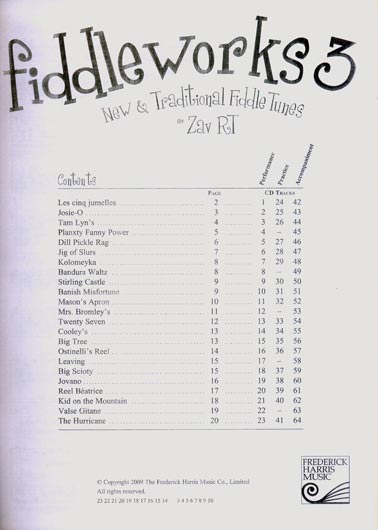 fiddleworks 3
New & Traditional Fiddle Tunes
BY Zav RT
Contents
Performance Practice Accompaniment
PAGE CD TRACKS
Les cinq jumelles 2 1 24 42
Josie-O 3 2 25 43
Tam Lyn's 4 3 26 44
Planxty Fanny Power 5 4 – 45
Dill Pickle Rag 6 5 27 46
Jig of Slurs 7 6 28 47
Kolomeyka 8 7 29 48
Bandura Waltz 8 8 – 49
Stirling Castle 9 9 30 50
Banish Misfortune 9 10 31 51
Mason's Apron 10 11 32 52
Mrs. Bromley's 11 12 – 53
Twenty Seven 12 13 33 54
Cooley's 13 14 34 55
Big Tree 13 15 35 56
Ostinelli's Reel 14 16 36 57
Leaving 15 17 – 58
Big Scioty 15 18 37 59
Jovano 16 19 38 60
Reel Béatrice 17 20 39 61
Kid on the Mountain 18 21 40 62
Valse Gitane 19 22 – 63
The Hurricane 20 23 41 64
FREDERICK
HARRIS
MUSIC
© Copyright 2009 The Frederick Harris Music Co., Limited
All rights reserved.
23 22 21 20 19 18 17 16 15 14 3 4 5 6 7 8 9 10